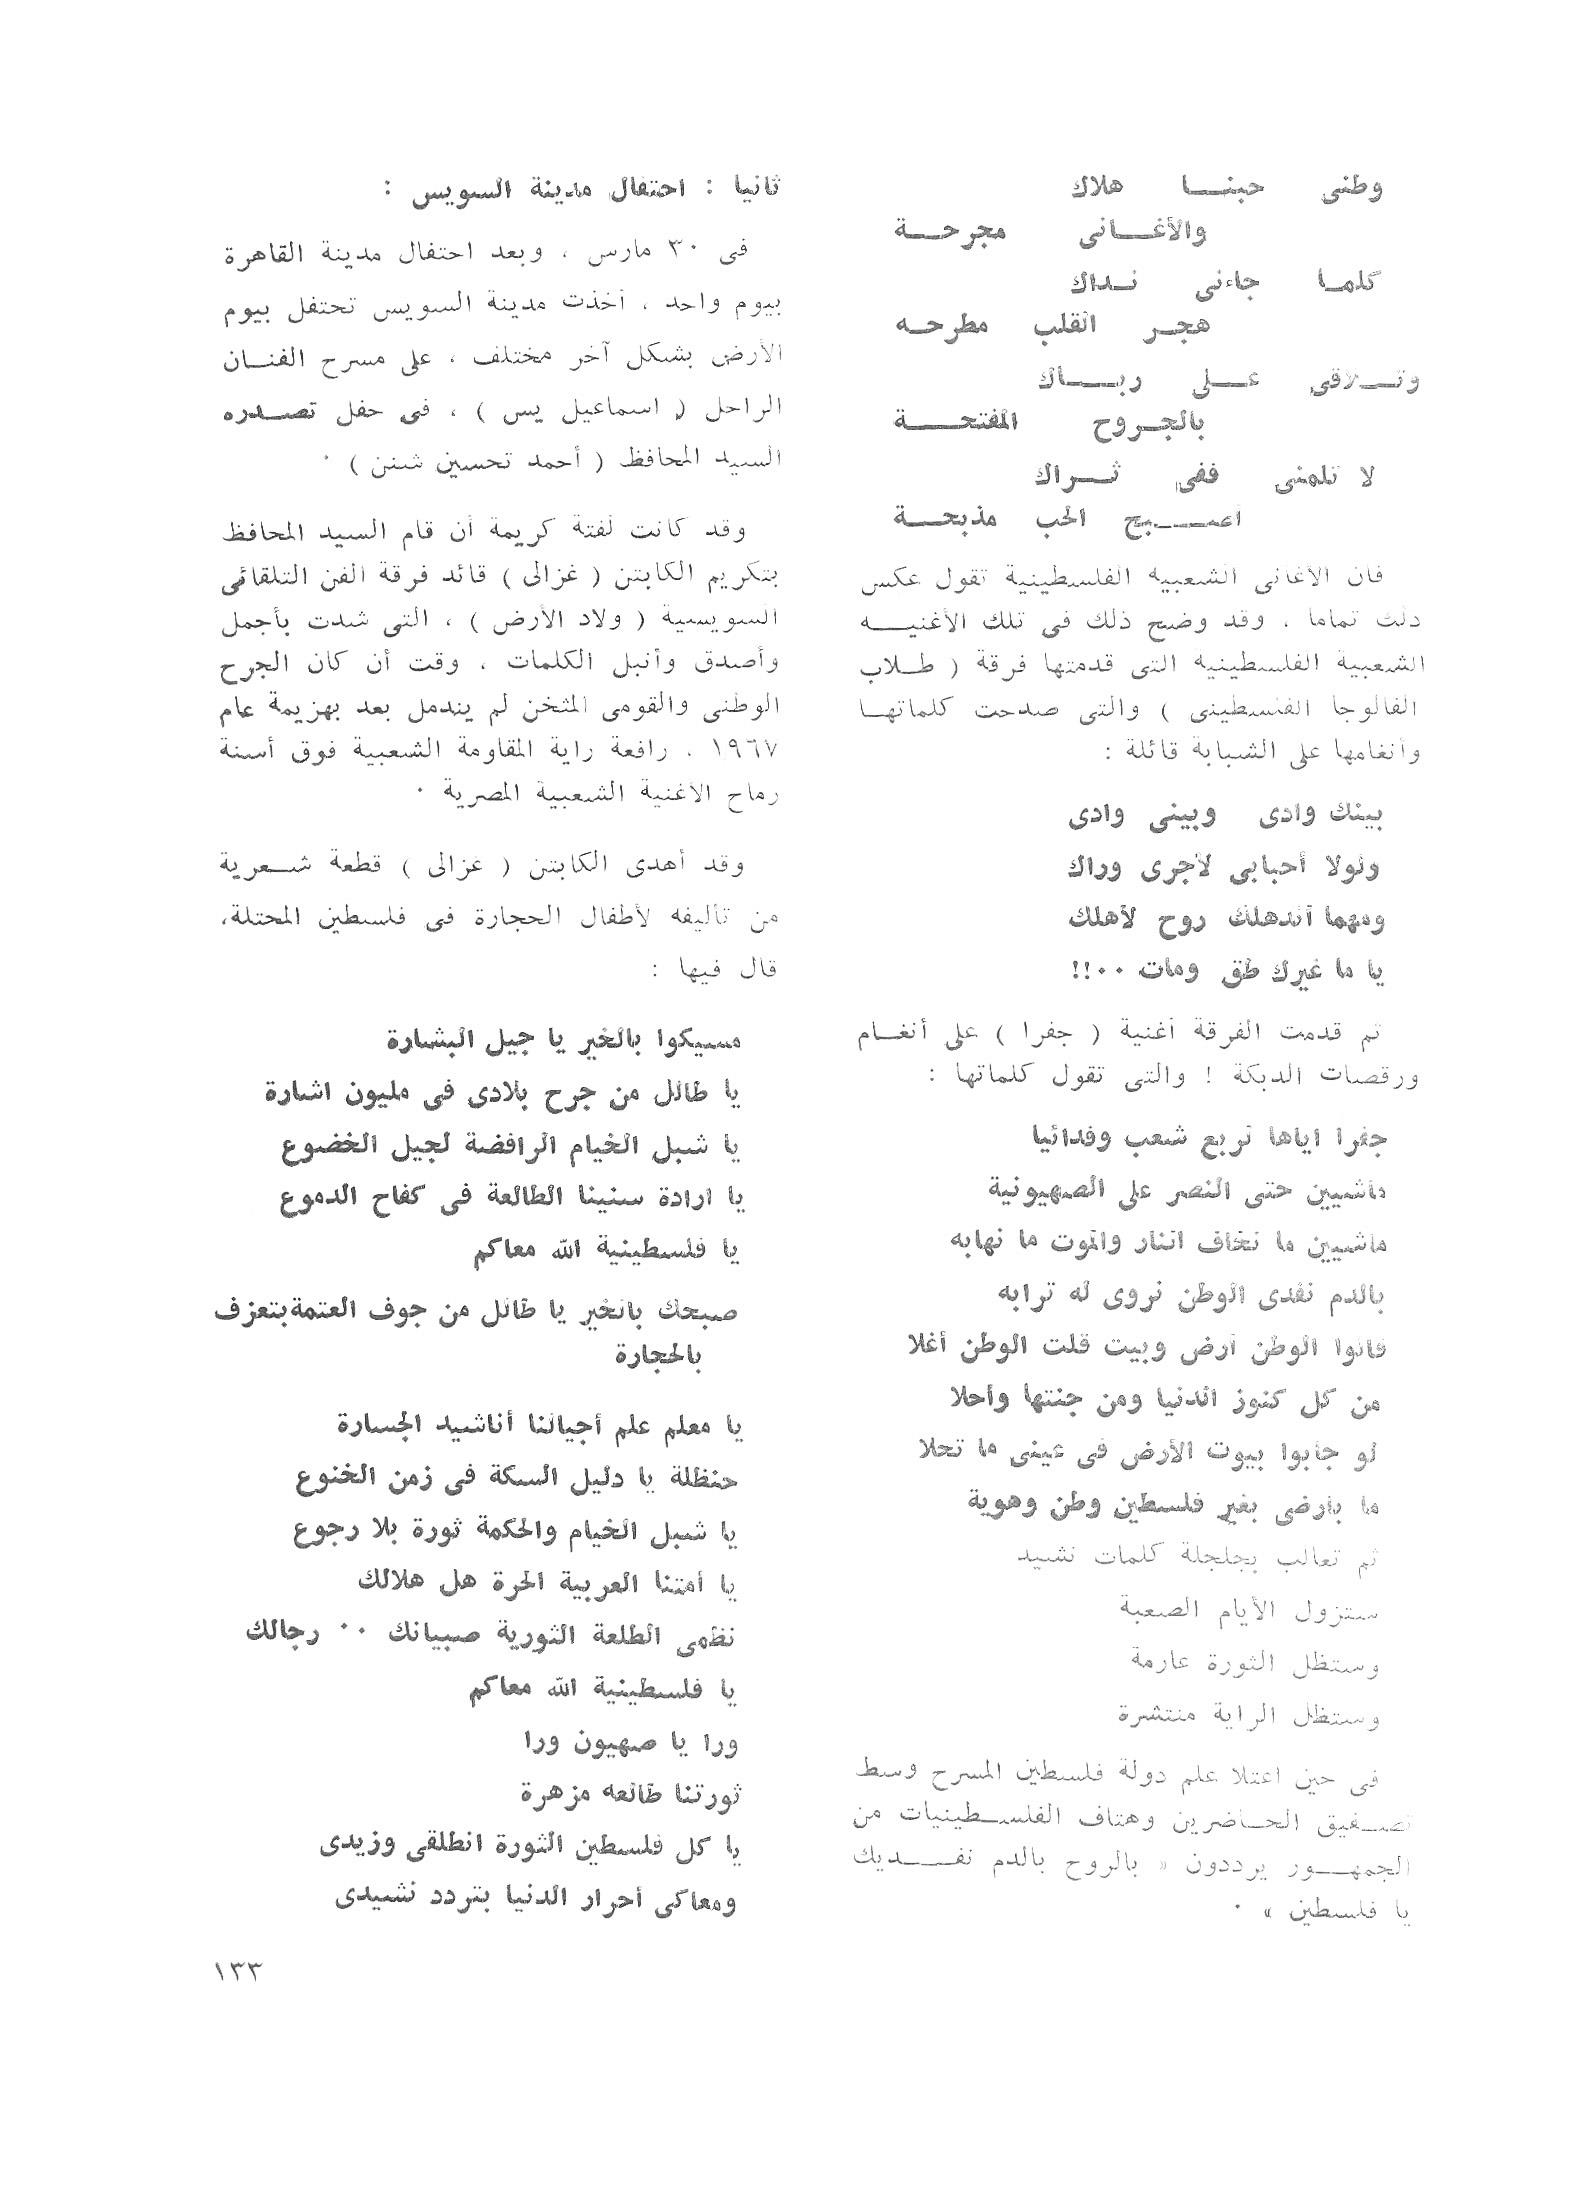 وطنى حبنـــا هلاك
والأغـــانى مجرحـــة
كلمـا جاءنى نـداك
هجـر القلب مطرحـه
وتــلاقى عــلى ربــاك
بالجـروح المفتحـــة
لا تلمنى ففى ثــراك
الحب مذبحـــة
فان الأغانى الشعبية الفلسطينية تقول عكس
ذلك تماما ، وقد وضح ذلك فى تلك الأغنيــه
الشعبية الفلسطينيه التى قدمتها فرقة ( طــلاب
الفالوجا الفلسطينى ) والتى صدحت كلماتهـا
وأنغامها على الشبابة قائلة :
بينك وادى وبينى وادى
ولولا أحبابى لأجرى وراك
ومهما أندهلك روح لأهلك
يا ما غيرك طق ومات ٠٠!!
ثم قدمت الفرقة أغنية ( جفرا ) على أنغـام
ورقصات الدبكة ! والتى تقول كلماتها :
جفرا اياها تربع شعب وفدائيا
ماشيين حتى النصر على الصهيونية
ماشيين ما نخاف النار والموت ما نهابه
بالدم نفدى الوطن نروى له ترابه
قالوا الوطن أرض وبيت قلت الوطن أغلا
من كل كنوز الدنيا ومن جنتها وأحلا
لو جابوا بيوت الأرض فى عينى ما تحلا
ما بأرضى بغير فلسطين وطن وهوية
ثم تعالب بجلجلة كلمات نشيد
ستزول الأيام الصعبة
وستظل الثورة عارمة
وستظل الراية منتشرة
فى حين اعتلا علم دولة فلسطين المسرح وسط
تصـفيق الحـاضرين وهتاف الفلسـطينيات من
الجمهــور يرددون « بالروح بالدم نفــديك
يا فلسطين » ٠
ثانيا : احتفال مدينة السويس :
فى ٣٠ مارس ، وبعد احتفال مدينة القاهرة
بيوم واحد ، أخذت مدينة السويس تحتفل بيوم
الأرض بشكل آخر مختلف ، على مسرح الفنـان
الراحل ( اسماعيل يس ) ، فى حفل تصـدره
السيد المحافظ ( أحمد تحسين شنن ) ٠
وقد كانت لفتة كريمة أن قام السيد المحافظ
بتكريم الكابتن ( غزالى ) قائد فرقة الفن التلقائى
السويسية ( ولاد الأرض ) ، التى شدت بأجمل
وأصدق وأنبل الكلمات ، وقت أن كان الجرح
الوطنى والقومى المثخن لم يندمل بعد بهزيمة عام
١٩٦٧ ، رافعة راية المقاومة الشعبية فوق أسنة
رماح الأغنية الشعبية المصرية ٠
وقد أهدى الكابتن ( غزالى ) قطعة شـعرية
من تأليفه لأطفال الحجارة فى فلسطين المحتلة،
قال فيها :
مسيكوا بالخير يا جيل البشارة
يا طالل من جرح بلادى فى مليون اشارة
يا شبل الخيام الرافضة لجيل الخضوع
يا ارادة سنينا الطالعة فى كفاح الدموع
يا فلسطينية الله معاكم
صبحك بالخير يا طالل من جوف العتمة بتعزف
بالحجارة
يا معلم علم أجيالنا أناشيد الجسارة
حنظلة يا دليل السكة فى زمن الخنوع
يا شبل الخيام والحكمة ثورة بلا رجوع
يا أمتنا العربية الحرة هل هلالك
نظمى الطلعة الثورية صبيانك ٠٠ رجالك
يا فلسطينية الله معاكم
ورا يا صهيون ورا
ثورتنا طالعه مزهرة
يا كل فلسطين الثورة انطلقى وزيدى
ومعاكى أحرار الدنيا بتردد نشيدى
١٣٣